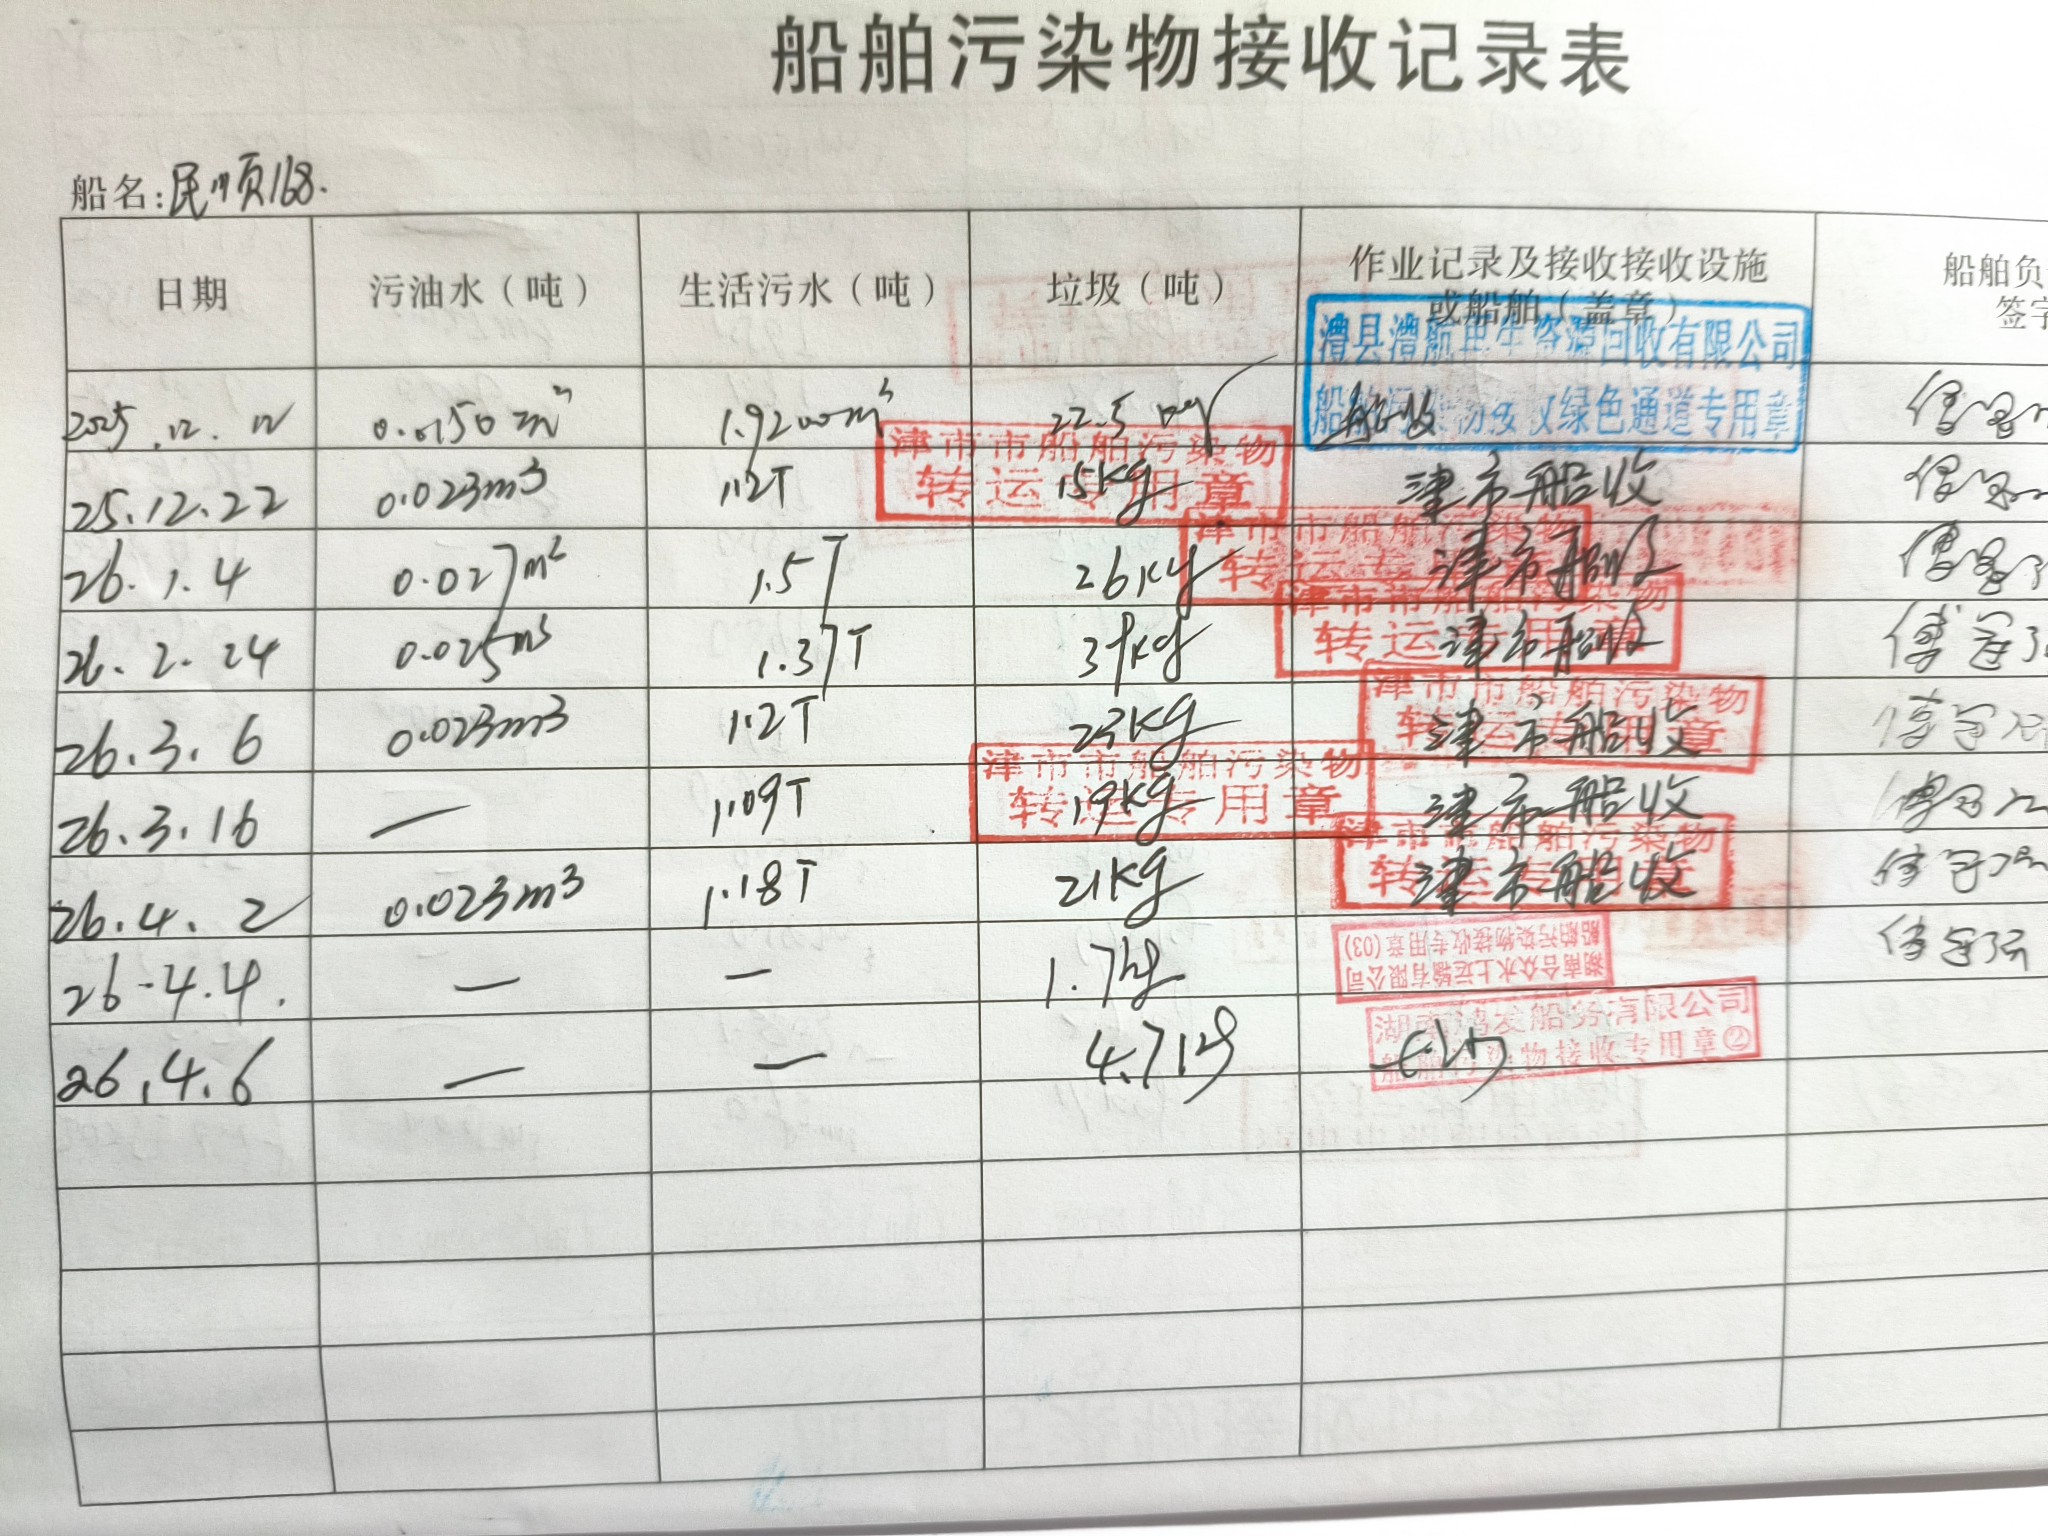 船舶污染物接收记录表
船名:民顺168.
日期 污油水（吨） 生活污水（吨） 垃圾（吨） 作业记录及接收接收设施或船舶（盖章） 船舶负 签字
澧县澧航再生资源回收有限公司
船舶污染物接收绿色通道专用章
2025.12.12 0.0150m³ 1.9200m³ 22.5kg 船收
津市市船舶污染物
转运专用章
25.12.22 0.023m³ 1.2T 15kg 津市船收
津市市船舶污染物
转运专用章
26.1.4 0.027m² 1.5T 26kg 津市船收
津市市船舶污染物
转运专用章
26.2.24 0.025m³ 1.37T 39kg 津市船收
津市市船舶污染物
转运专用章
26.3.6 0.023m³ 1.2T 23kg 津市船收
津市市船舶污染物
转运专用章
26.3.16 — 1.09T 19kg 津市船收
津市市船舶污染物
转运专用章
26.4.2 0.023m³ 1.18T 21kg 津市船收
湖南合众水上运输有限公司
船舶污染物接收专用章(03)
26.4.4. — — 1.7kg
湖南鸿发船务有限公司
船舶污染物接收专用章②
26.4.6 — — 4.7kg